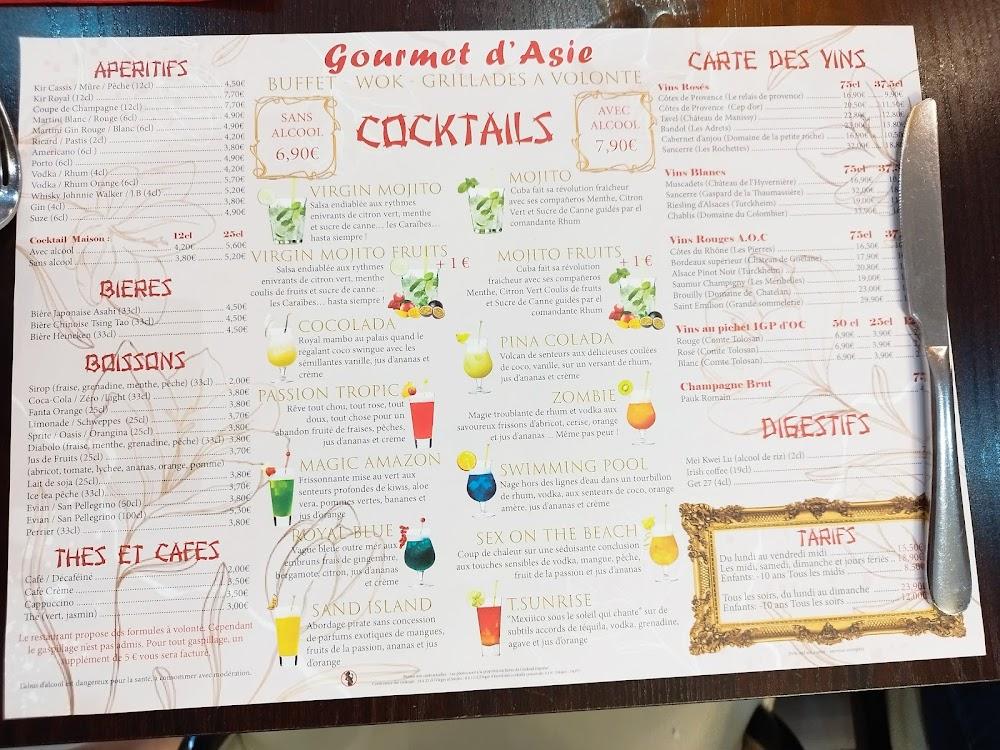 Gourmet d'Asie
BUFFET - WOK - GRILLADES A VOLONTE
COCKTAILS
SANS
ALCOOL
6,90€
AVEC
ALCOOL
7,90€
APERITIFS
Kir Cassis / Mûre / Pêche (12cl) 4,50€
Kir Royal (12cl) 7,70€
Coupe de Champagne (12cl) 7,70€
Martini Blanc / Rouge (6cl) 4,90€
Martini Gin Rouge / Blanc (6cl) 4,90€
Ricard / Pastis (2cl) 4,20€
Americano (6cl) 3,80€
Porto (6cl) 4,90€
Vodka / Rhum (4cl) 4,20€
Vodka / Rhum Orange (6cl) 5,70€
Whisky Johnnie Walker / J.B (4cl) 5,20€
Gin (4cl) 3,80€
Suze (6cl) 4,90€
Cocktail Maison : 12cl 25cl
Avec alcool 4,20€ 5,60€
Sans alcool 3,80€ 5,20€
BIERES
Bière Japonaise Asahi (33cl) 4,50€
Bière Chinoise Tsing Tao (33cl) 4,50€
Bière Heineken (33cl) 4,50€
BOISSONS
Sirop (fraise, grenadine, menthe, pêche) (33cl) 2,00€
Coca-Cola / Zéro / light (33cl) 3,80€
Fanta Orange (25cl) 3,80€
Limonade / Schweppes (25cl) 3,70€
Sprite / Oasis / Orangina (25cl) 3,80€
Diabolo (fraise, menthe, grenadine, pêche) (33cl) 3,80€
Jus de Fruits (25cl) 3,70€
(abricot, tomate, lychee, ananas, orange, pomme)
Lait de soja (25cl) 3,80€
Ice tea pêche (33cl) 3,70€
Evian / San Pellegrino (50cl) 3,80€
Evian / San Pellegrino (100cl) 5,30€
Perrier (33cl) 3,80€
THES ET CAFES
Café / Décaféiné 2,00€
Café Crème 3,50€
Cappuccino 3,50€
Thé (vert, jasmin) 3,00€
Le restaurant propose des formules à volonté. Cependant
le gaspillage n'est pas admis. Pour tout gaspillage, un
supplément de 5 € vous sera facturé.
L'abus d'alcool est dangereux pour la santé, à consommer avec modération.
VIRGIN MOJITO
Salsa endiablée aux rythmes
enivrants de citron vert, menthe
et sucre de canne... les Caraïbes...
hasta siempre !
VIRGIN MOJITO FRUITS
+ 1 €
Salsa endiablée aux rythmes
enivrants de citron vert, menthe
coulis de fruits et sucre de canne...
les Caraïbes... hasta siempre !
COCOLADA
Royal mambo au palais quand le
regalant coco swingue avec les
sémillantes vanille, jus d'ananas et
crème
PASSION TROPIC
Rêve tout chou, tout rose, tout
doux, tout chose pour un
abandon fruite de fraises, pêches,
jus d'ananas et crème
MAGIC AMAZON
Frissonnante mise au vert aux
senteurs profondes de kiwis, aloe
vera, pommes vertes, bananes et
jus d'orange
ROYAL BLUE
Vague bleue outre mer aux
embruns frais de gingembre,
bergamote, citron, jus d'ananas
et crème
SAND ISLAND
Abordage pirate sans concession
de parfums exotiques de mangues,
fruits de la passion, ananas et jus
d'orange
MOJITO
Cuba fait sa révolution fraicheur
avec ses compañeros Menthe, Citron
Vert et Sucre de Canne guidés par el
comandante Rhum
MOJITO FRUITS
+ 1 €
Cuba fait sa révolution
fraicheur avec ses compañeros
Menthe, Citron Vert Coulis de fruits
et Sucre de Canne guidés par el
comandante Rhum
PINA COLADA
Volcan de senteurs aux délicieuses coulées
de coco, vanille, sur un versant de rhum,
jus d'ananas et crème
ZOMBIE
Magie troublante de rhum et vodka aux
savoureux frissons d'abricot, cerise, orange
et jus d'ananas ... Même pas peur !
SWIMMING POOL
Nage hors des lignes d'eau dans un tourbillon
de rhum, vodka, aux senteurs de coco, orange
amère, jus d'ananas et crème.
SEX ON THE BEACH
Coup de chaleur sur une séduisante conclusion
aux touches sensibles de vodka, mangue, pêche,
fruit de la passion et jus d'ananas
T.SUNRISE
"Mexiiico sous le soleil qui chante" sur de
subtils accords de téquila, vodka, grenadine,
agave et jus d'orange
CARTE DES VINS
Vins Rosés 75cl 37,5cl
Côtes de Provence (Le relais de provence) 16,90€ 9,90€
Côtes de Provence (Cep d'or) 20,50€ 11,50€
Tavel (Château de Manissy) 22,80€ 12,80€
Bandol (Les Adrets) 23,00€ 13,80
Cabernet d'anjou (Domaine de la petite roche) 16,90€ 10,50
Sancerre (Les Rochettes) 32,00€ 18,80
Vins Blancs 75cl 37,5
Muscadets (Château de l'Hyvernière) 16,90€
Sancerre (Gaspard de la Thaumassière) 32,00€
Riesling d'Alsaces (Turckheim)
Chablis (Domaine du Colombier)
Vins Rouges A.O.C 75cl 37
Côtes du Rhône (Les Pierres) 16,50€
Bordeaux supérieur (Château de Guérane) 17,90€
Alsace Pinot Noir (Turckheim) 20,80€
Saumur Champigny (Les Menhelles) 19,00€
Brouilly (Domaine de Chatelan) 23,00€
Saint Emilion (Grande sommelerie) 29,90€
Vins au pichet IGP d'OC 50 cl 25cl 12
Rouge (Comte Tolosan) 6,90€ 3,90€
Rosé (Comte Tolosan) 6,90€ 3,90€
Blanc (Comte Tolosan) 6,90€ 3,90€
Champagne Brut 7
Pauk Romain
DIGESTIFS
Mei Kwei Lu (alcool de riz) (2cl)
Irish coffee (19cl)
Get 27 (4cl)
TARIFS
Du lundi au vendredi midi 15,50€
Les midi, samedi, dimanche et jours fériés 18,90€
Enfants: -10 ans Tous les midis 8,50
Tous les soirs, du lundi au dimanche 23,90€
Enfants: -10 ans Tous les soirs 12,00